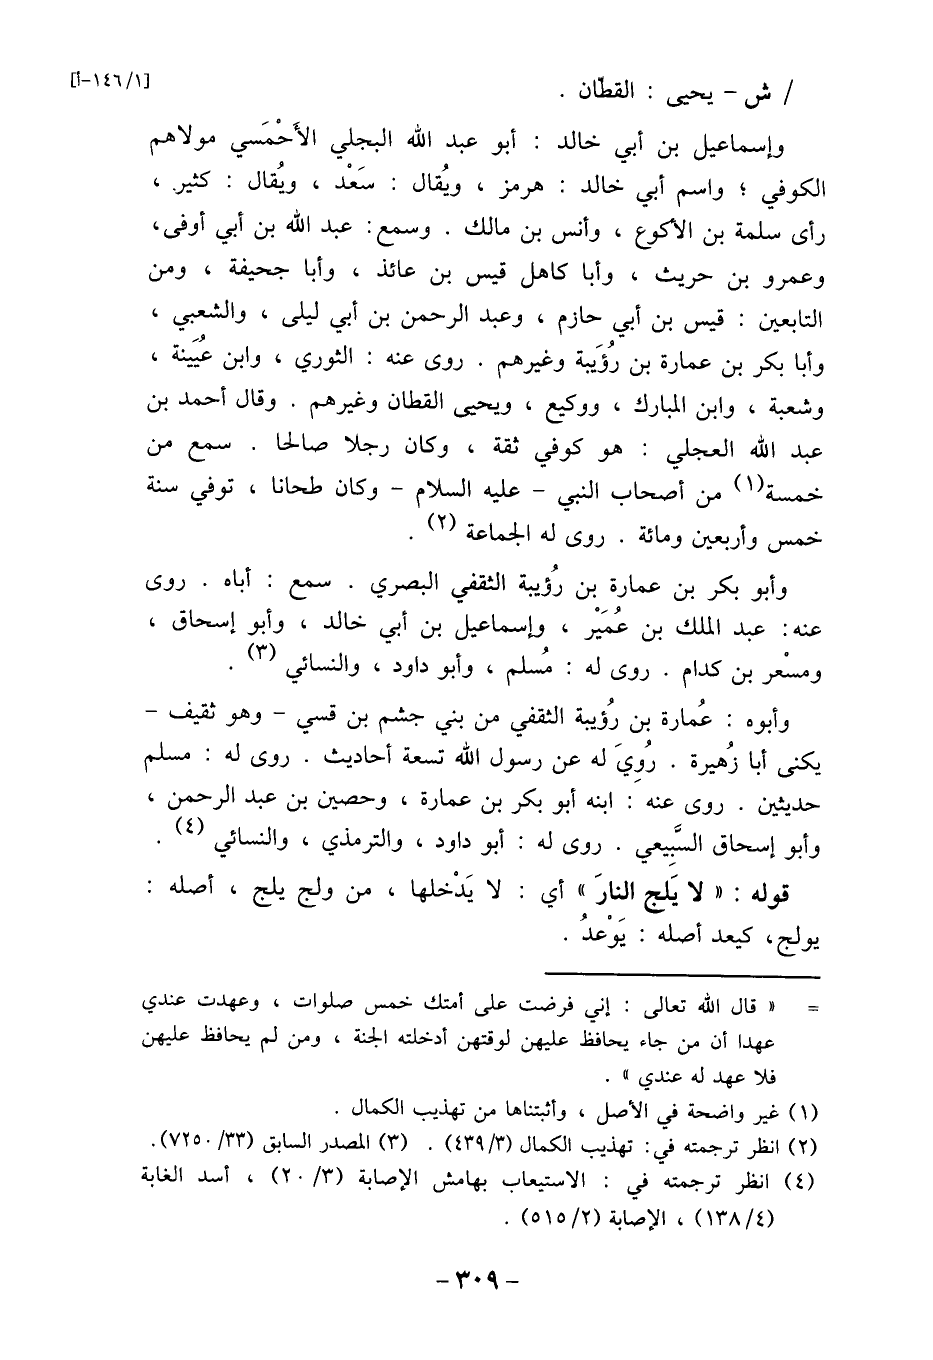 / ش – يحيى : القطّان .
[١/١٤٦-أ]
وإسماعيل بن أبي خالد : أبو عبد الله البجلي الأَحْمَسي مولاهم
الكوفي ؛ واسم أبي خالد : هرمز ، ويُقال : سَعْد ، ويُقال : كثير ،
رأى سلمة بن الأكوع ، وأنس بن مالك . وسمع: عبد الله بن أبي أوفى،
وعمرو بن حريث ، وأبا كاهل قيس بن عائذ ، وأبا جحيفة ، ومن
التابعين : قيس بن أبي حازم ، وعبد الرحمن بن أبي ليلى ، والشعبي ،
وأبا بكر بن عمارة بن رُؤَيبة وغيرهم . روى عنه : الثوري ، وابن عُيَينة ،
وشعبة ، وابن المبارك ، ووكيع ، ويحيى القطان وغيرهم . وقال أحمد بن
عبد الله العجلي : هو كوفي ثقة ، وكان رجلا صالحا . سمع من
خمسة(١) من أصحاب النبي – عليه السلام – وكان طحانا ، توفي سنة
خمس وأربعين ومائة . روى له الجماعة (٢) .
وأبو بكر بن عمارة بن رُؤيبة الثقفي البصري . سمع : أباه . روى
عنه: عبد الملك بن عُمَيْر ، وإسماعيل بن أبي خالد ، وأبو إسحاق ،
ومسْعر بن كدام . روى له : مُسلم ، وأبو داود ، والنسائي (٣) .
وأبوه : عُمارة بن رُؤيبة الثقفي من بني جشم بن قسي – وهو ثقيف –
يكنى أبا زُهيرة . رُوِيَ له عن رسول الله تسعة أحاديث . روى له : مسلم
حديثين . روى عنه : ابنه أبو بكر بن عمارة ، وحصين بن عبد الرحمن ،
وأبو إسحاق السَّبِيعي . روى له : أبو داود ، والترمذي ، والنسائي (٤) .
قوله : « لا يَلج النارَ » أي : لا يَدْخلها ، من ولج يلج ، أصله :
يولج، كيعد أصله : يَوْعدُ .
= « قال الله تعالى : إني فرضت على أمتك خمس صلوات ، وعهدت عندي
عهدا أن من جاء يحافظ عليهن لوقتهن أدخلته الجنة ، ومن لم يحافظ عليهن
فلا عهد له عندي » .
(١) غير واضحة في الأصل ، وأثبتناها من تهذيب الكمال .
(٢) انظر ترجمته في: تهذيب الكمال (٤٣٩/٣) . (٣) المصدر السابق (٧٢٥٠/٣٣).
(٤) انظر ترجمته في : الاستيعاب بهامش الإصابة (٢٠/٣) ، أسد الغابة
(١٣٨/٤) ، الإصابة (٥١٥/٢) .
– ٣٠٩ –